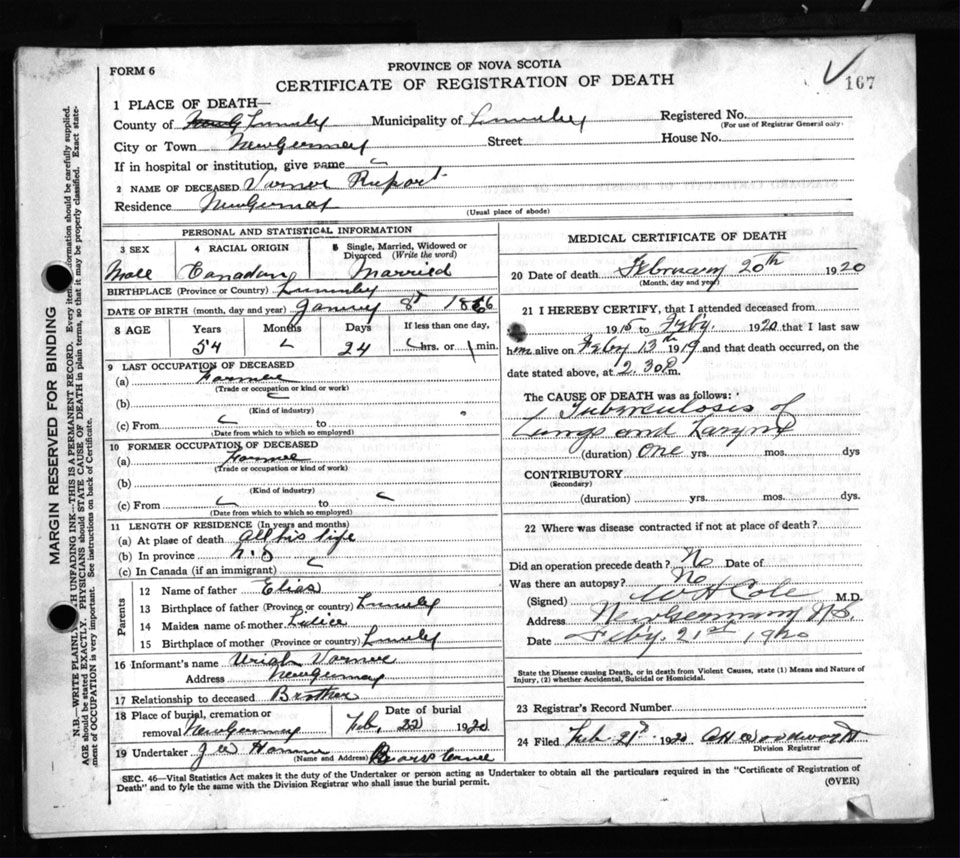 PROVINCE OF NOVA SCOTIA
FORM 6
CERTIFICATE OF REGISTRATION OF DEATH
167
1 PLACE OF DEATH—
County of Lunnby Municipality of Registered No.
(For use of Registrar General only)
City or Town New Germany Street House No.
If in hospital or institution, give name
2 NAME OF DECEASED Varner Rupert
Residence New Germany
(Usual place of abode)
PERSONAL AND STATISTICAL INFORMATION
3 SEX 4 RACIAL ORIGIN 5 Single, Married, Widowed or Divorced (Write the word)
Male Canadian Married
BIRTHPLACE (Province or Country) Lunnby
DATE OF BIRTH (month, day and year) 8th 1866
8 AGE Years Months Days If less than one day,
54 24 hrs. or min.
9 LAST OCCUPATION OF DECEASED
(a) Farmer
(Trade or occupation or kind or work)
(b)
(Kind of industry)
(c) From to
(Date from which to which so employed)
10 FORMER OCCUPATION OF DECEASED
(a) Farmer
(Trade or occupation or kind of work)
(b)
(Kind of industry)
(c) From to
(Date from which to which so employed)
11 LENGTH OF RESIDENCE (In years and months)
(a) At place of death all his life
(b) In province N.S
(c) In Canada (if an immigrant)
Parents
12 Name of father Elias
13 Birthplace of father (Province or country) Lunnby
14 Maiden name of mother
15 Birthplace of mother (Province or country) Lunnby
16 Informant's name Varner
Address New Germany
17 Relationship to deceased Brother
18 Place of burial, cremation or removal New Germany Date of burial Feb, 22 1920
19 Undertaker
(Name and Address)
MEDICAL CERTIFICATE OF DEATH
20 Date of death February 20th 1920
(Month, day and year)
21 I HEREBY CERTIFY, that I attended deceased from
1915 to Feby. 1920 that I last saw
him alive on Feby 13th 1919 and that death occurred, on the
date stated above, at 2.30 P.m.
The CAUSE OF DEATH was as follows:
Tuberculosis of
Lungs and Larynx
(duration) one yrs. mos. dys
CONTRIBUTORY
(Secondary)
(duration) yrs. mos. dys.
22 Where was disease contracted if not at place of death?
Did an operation precede death? No Date of
Was there an autopsy? No
(Signed) W H Cole M.D.
Address New Germany N.S.
Date Feby. 21st 1920
State the Disease causing Death, or in death from Violent Causes, state (1) Means and Nature of
Injury, (2) whether Accidental, Suicidal or Homicidal.
23 Registrar's Record Number
24 Filed Feb 21st 1920
Division Registrar
SEC. 46—Vital Statistics Act makes it the duty of the Undertaker or person acting as Undertaker to obtain all the particulars required in the "Certificate of Registration of
Death" and to fyle the same with the Division Registrar who shall issue the burial permit.
(OVER)
MARGIN RESERVED FOR BINDING
N.B.—WRITE PLAINL H UNFADING INK—THIS IS A PERMANENT RECORD. Every item information should be carefully supplied.
AGE should be stated EXACTLY. PHYSICIANS should STATE CAUSE OF DEATH in plain terms, so that it may be properly classified. Exact state-
ment of OCCUPATION is very important. See instructions on back of Certificate.